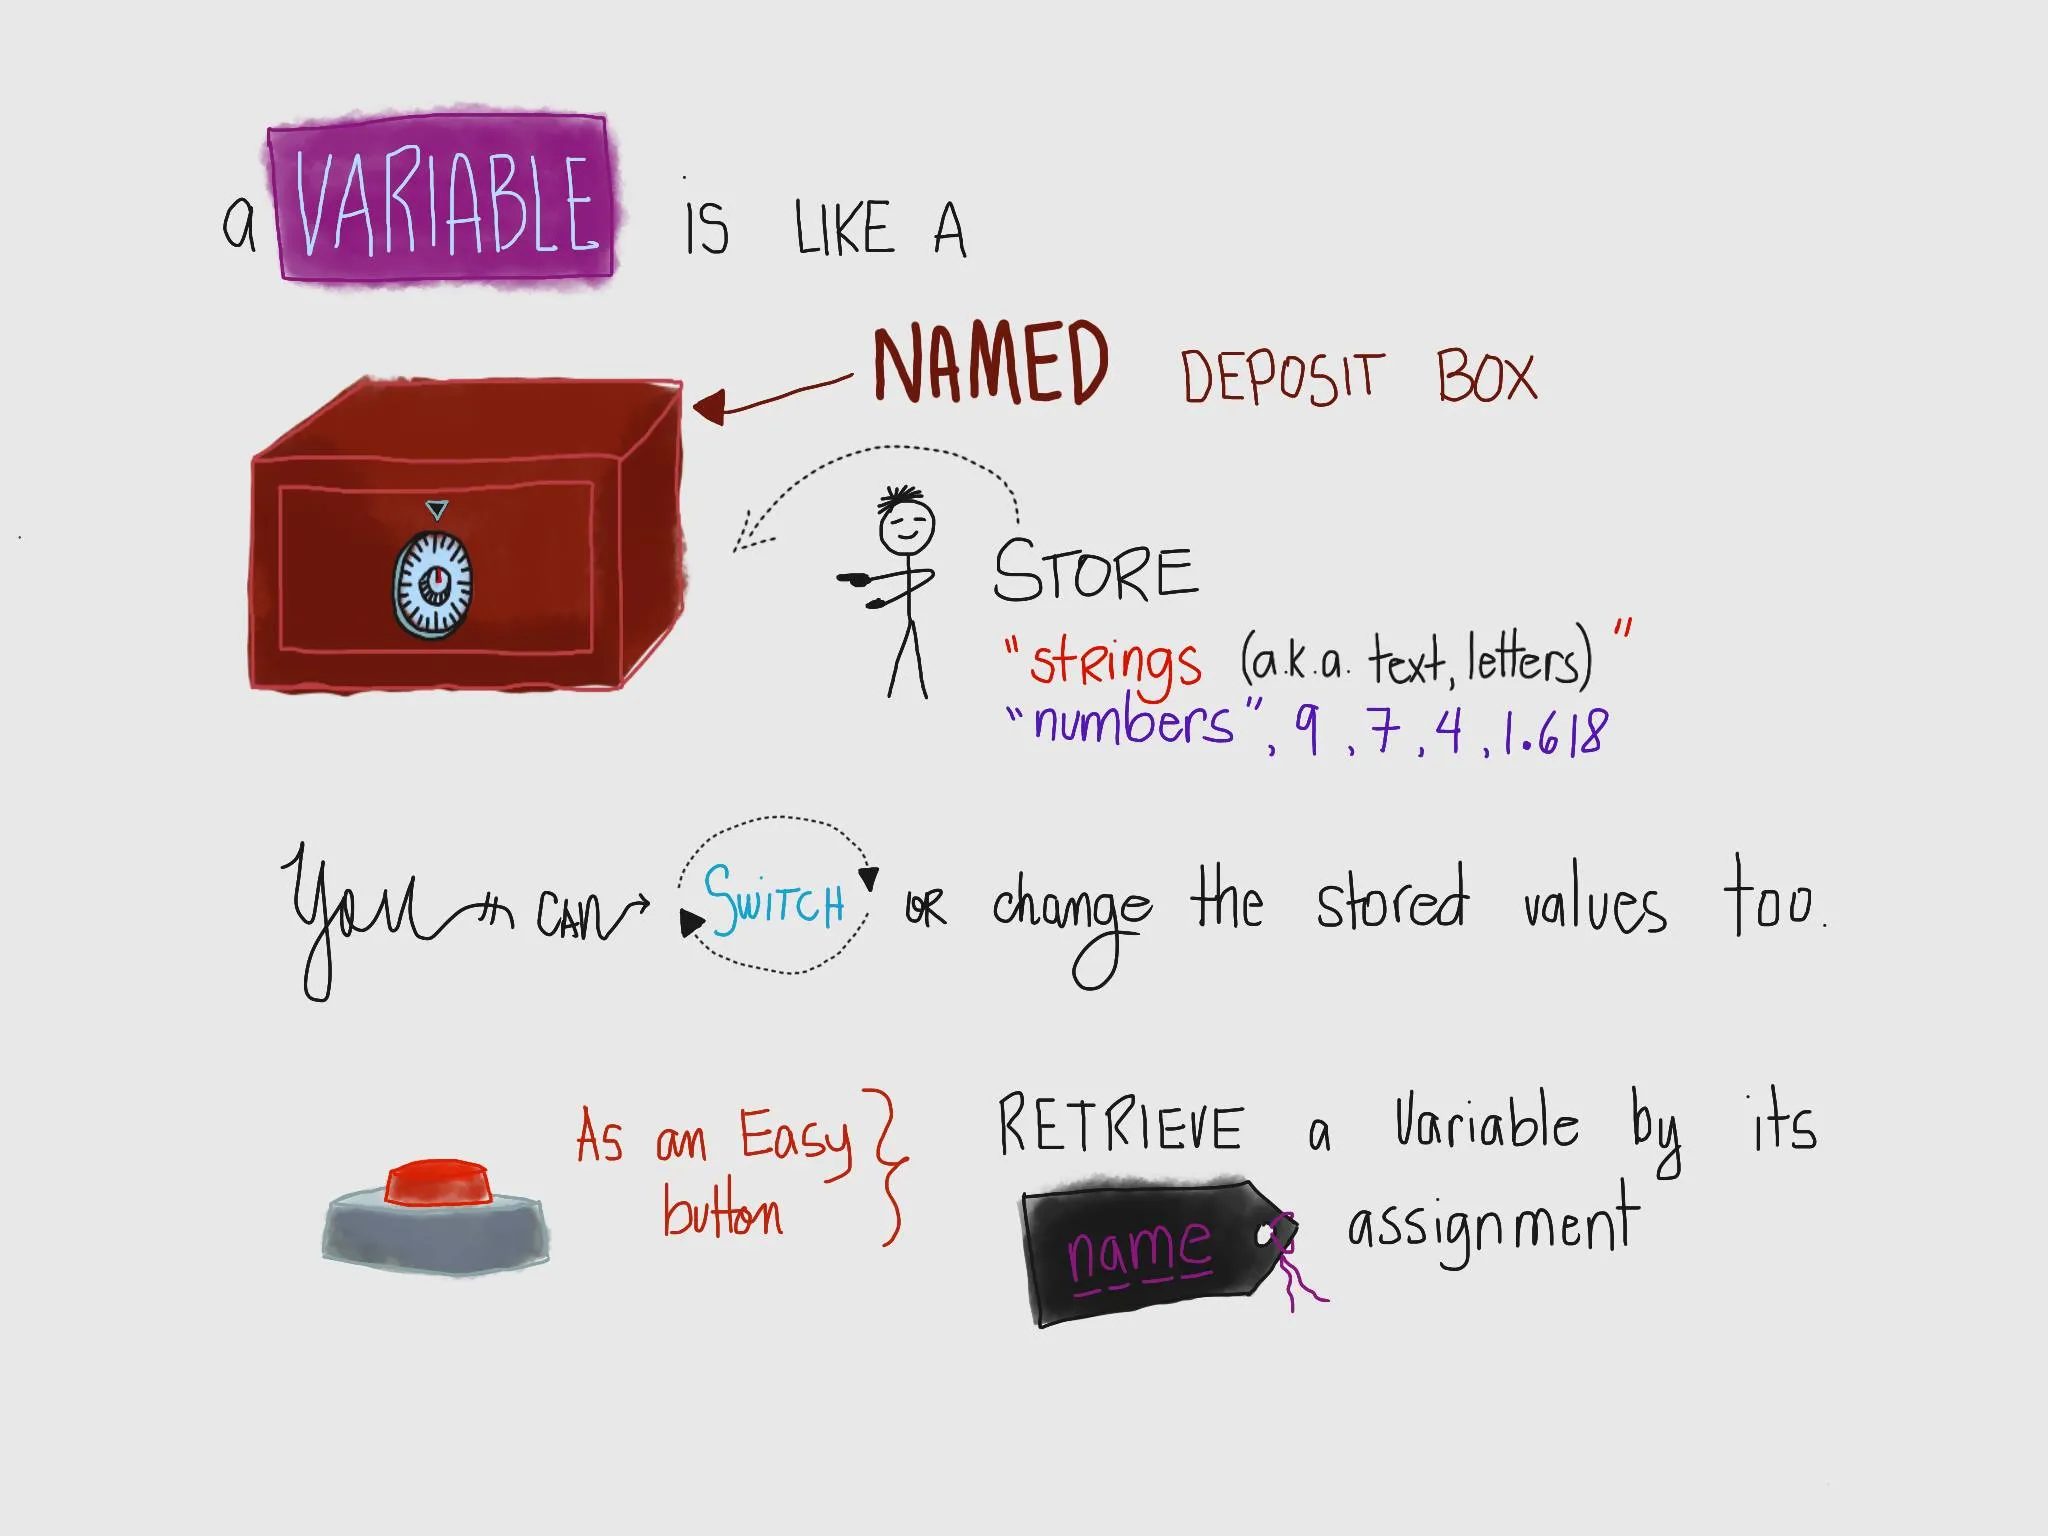 a VARIABLE IS LIKE A
NAMED DEPOSIT BOX
STORE
"strings (a.k.a. text, letters)"
"numbers", 9, 7, 4, 1.618
You CAN SWITCH OR change the stored values too.
As an Easy button
RETRIEVE a Variable by its
name assignment